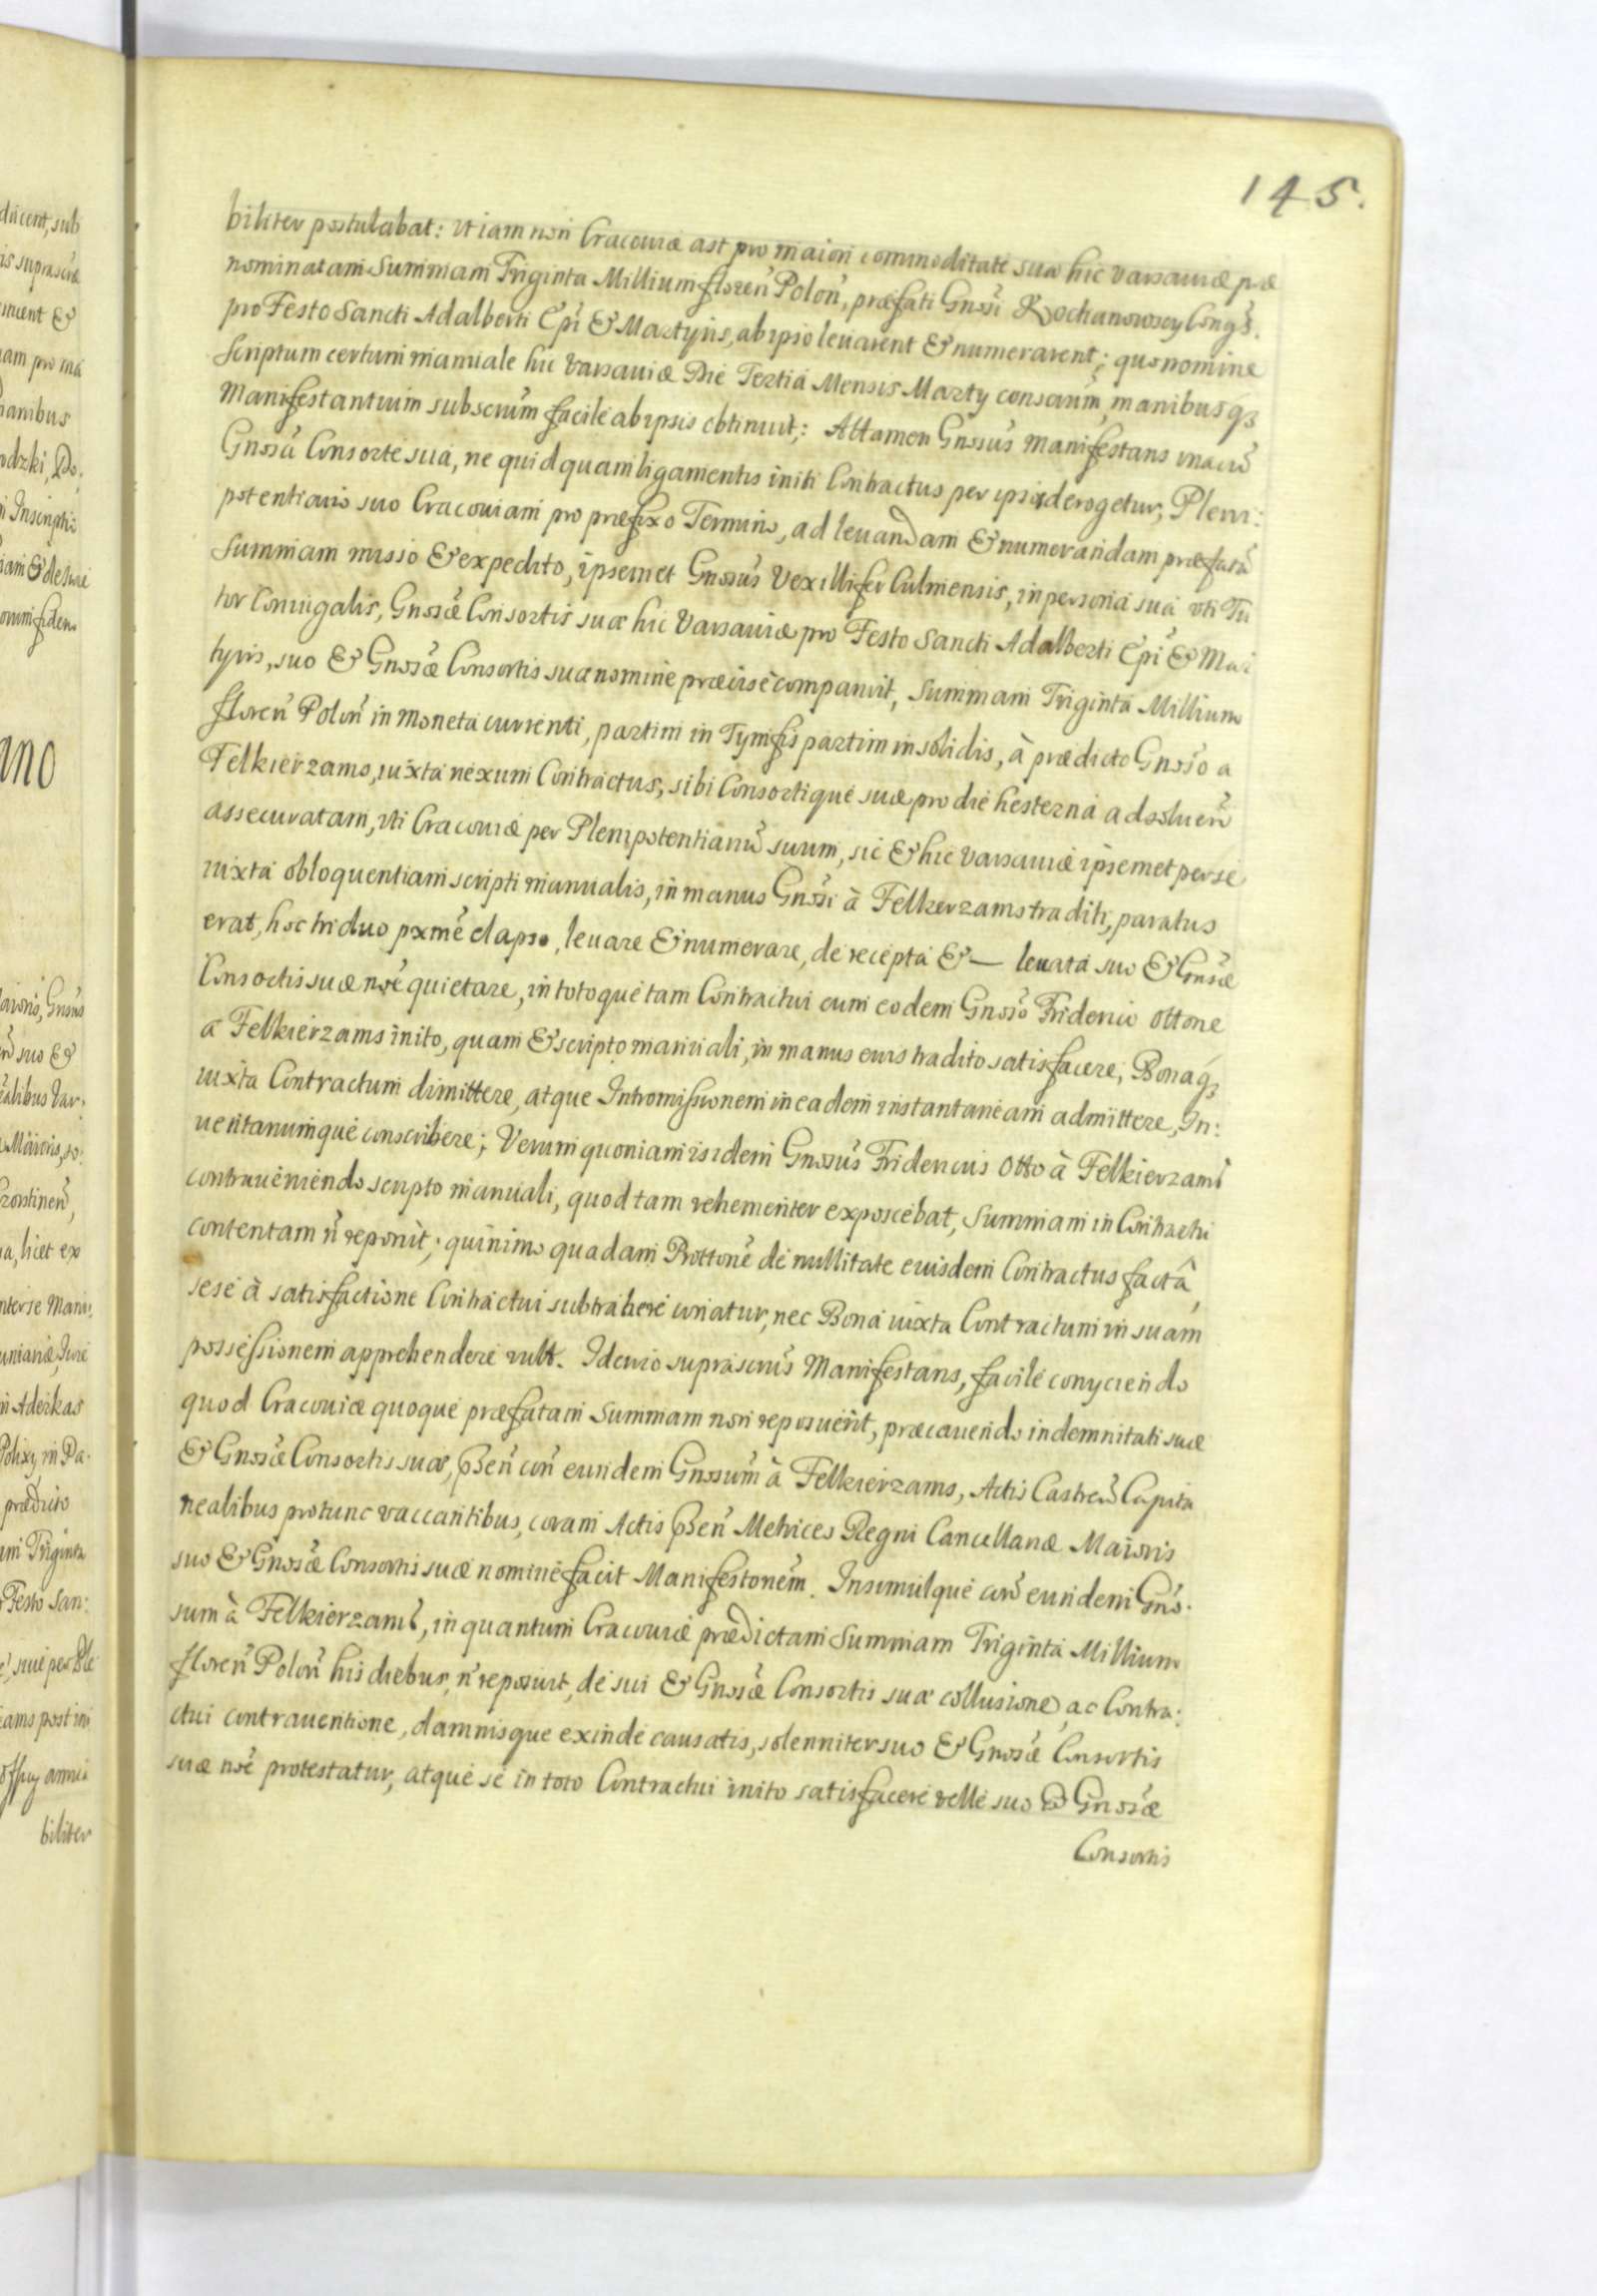 145.
biliter postulabat: vt iam non Cracouiæ ast pro maiori commoditate sua hic Varsauiæ præ
nominatam Summam Triginta Millium floren̄ Polon̄, præfati Gnosi Kochanowscy Congs.
pro Festo Sancti Adalberti Epi & Martyris, ab ipso leuarent & numerarent; quo nomine
Scriptum certum manuale hic Varsauiæ Die Tertia Mensis Marty conscrum, manibusq3
Manifestantium subscrum facile ab ipsis obtinuit,: Attamen Gnosus Manifestans vnacū
Gnosa Consorte sua, ne quidquam ligamentis initi Contractus per ipsū derogetur, Pleni:
potentiario suo Cracouiam pro præfixo Termino, ad leuandam & numerandam præfatā
Summam misso & expedito, ipsemet Gnosus Vexillifer Culmensis, in persona sua vti Tu
tor Coniugalis, Gnosæ Consortis suæ hic Varsauiæ pro Festo Sancti Adalberti Epi & Mar
tyris, suo & Gnosæ Consortis suæ nomine præcise comparuit, Summam Triginta Millium
floren̄ Polon̄ in moneta currenti, partim in Tymfis partim in solidis, à prædicto Gnoso a
Felkierzams, iuxta nexum Contractus, sibi Consortique suæ pro die hesterna ad soluen̄
assecuratam, vti Cracouiæ per Plenipotentiariū suum, sic & hic Varsauiæ ipsemet per se
iuxta obloquentiam scripti manualis, in manus Gnosi à Felkerzams traditi, paratus
erat, hoc triduo pxme elapso, leuare & numerare, de recepta & — leuata suo & Gnosæ
Consortis suæ noe quietare, in totoque tam Contractui cum eodem Gnoso Friderico Ottone
a Felkierzams inito, quam & scripto manuali, in manus eius tradito satisfacere, Bonaq3
iuxta Contractum dimittere, atque Intromissionem in eadem instantaneam admittere, In:
uentariumque conscribere; Verum quoniam isidem Gnosus Fridericus Otto à Felkierzams
contraueniendo scripto manuali, quod tam vehementer exposcebat, Summam in Contractu
contentam n̄ reponit; quinimo quadam Prottone de nullitate eiusdem Contractus facta,
sese à satisfactione Contractui subtrahere conatur, nec Bona iuxta Contractum in suam
possessionem apprehendere vult. Idcirco suprascrus Manifestans, facile conyciendo
quod Cracouiæ quoque præfatam Summam non reposuerit, præcauendo indemnitati suæ
& Gnosæ Consortis suæ, Psen̄ con̄ eundem Gnosum à Felkierzams, Actis Castren̄ Capita
nealibus protunc vaccantibus, coram Actis Psen̄ Metrices Regni Cancellariæ Maioris
suo & Gnosæ Consortis suæ nomine facit Manifestonem. Insimulque con̄ eundem Gno.
sum à Felkierzams, in quantum Cracouiæ prædictam Summam Triginta Millium
floren̄ Polon̄ his diebus, n̄ reposuit, de sui & Gnosæ Consortis suæ collusione, ac Contra:
ctui contrauentione, damnisque exinde causatis, solenniter suo & Gnosæ Consortis
suæ noe protestatur, atque se in toto Contractui inito satisfacere velle suo & Gnosæ
Consortis